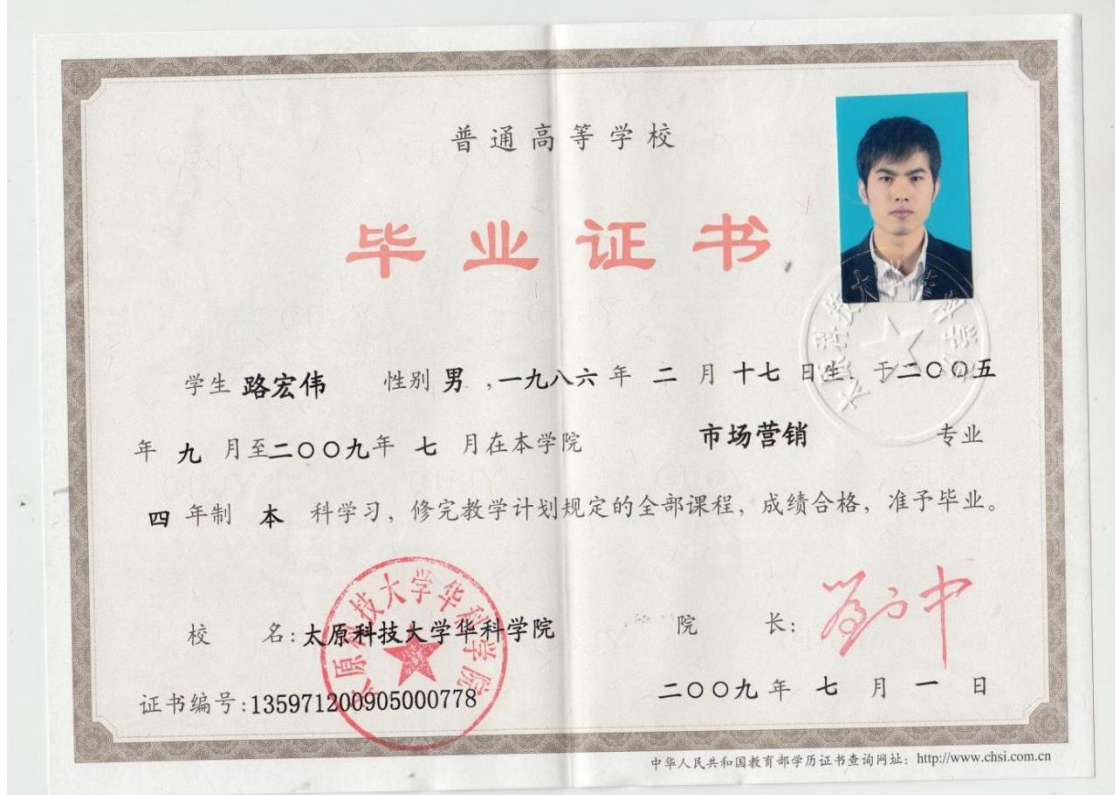 普通高等学校
毕业证书
学生 路宏伟 性别 男 ,一九八六 年 二 月 十七 日生, 于二〇〇五
年 九 月至二〇〇九年 七 月在本学院 市场营销 专业
四 年制 本 科学习，修完教学计划规定的全部课程，成绩合格，准予毕业。
校 名:太原科技大学华科学院 院 长:
太原科技大学华科学院
证书编号:135971200905000778 二〇〇九 年 七 月 一 日
中华人民共和国教育部学历证书查询网址: http://www.chsi.com.cn